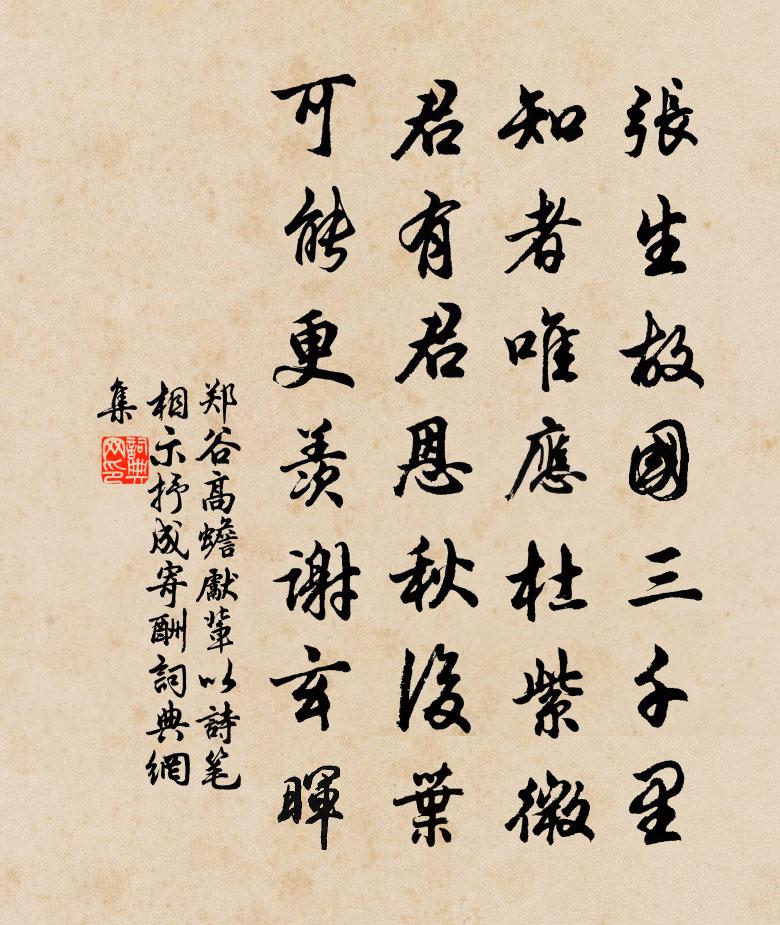 張生故國三千里
知者唯應杜紫微
君有君恩秋後葉
可能更羨謝玄暉
郑谷高蟾獻輩以詩笔
相示抒成寄酬詞典網
集
詞典网印